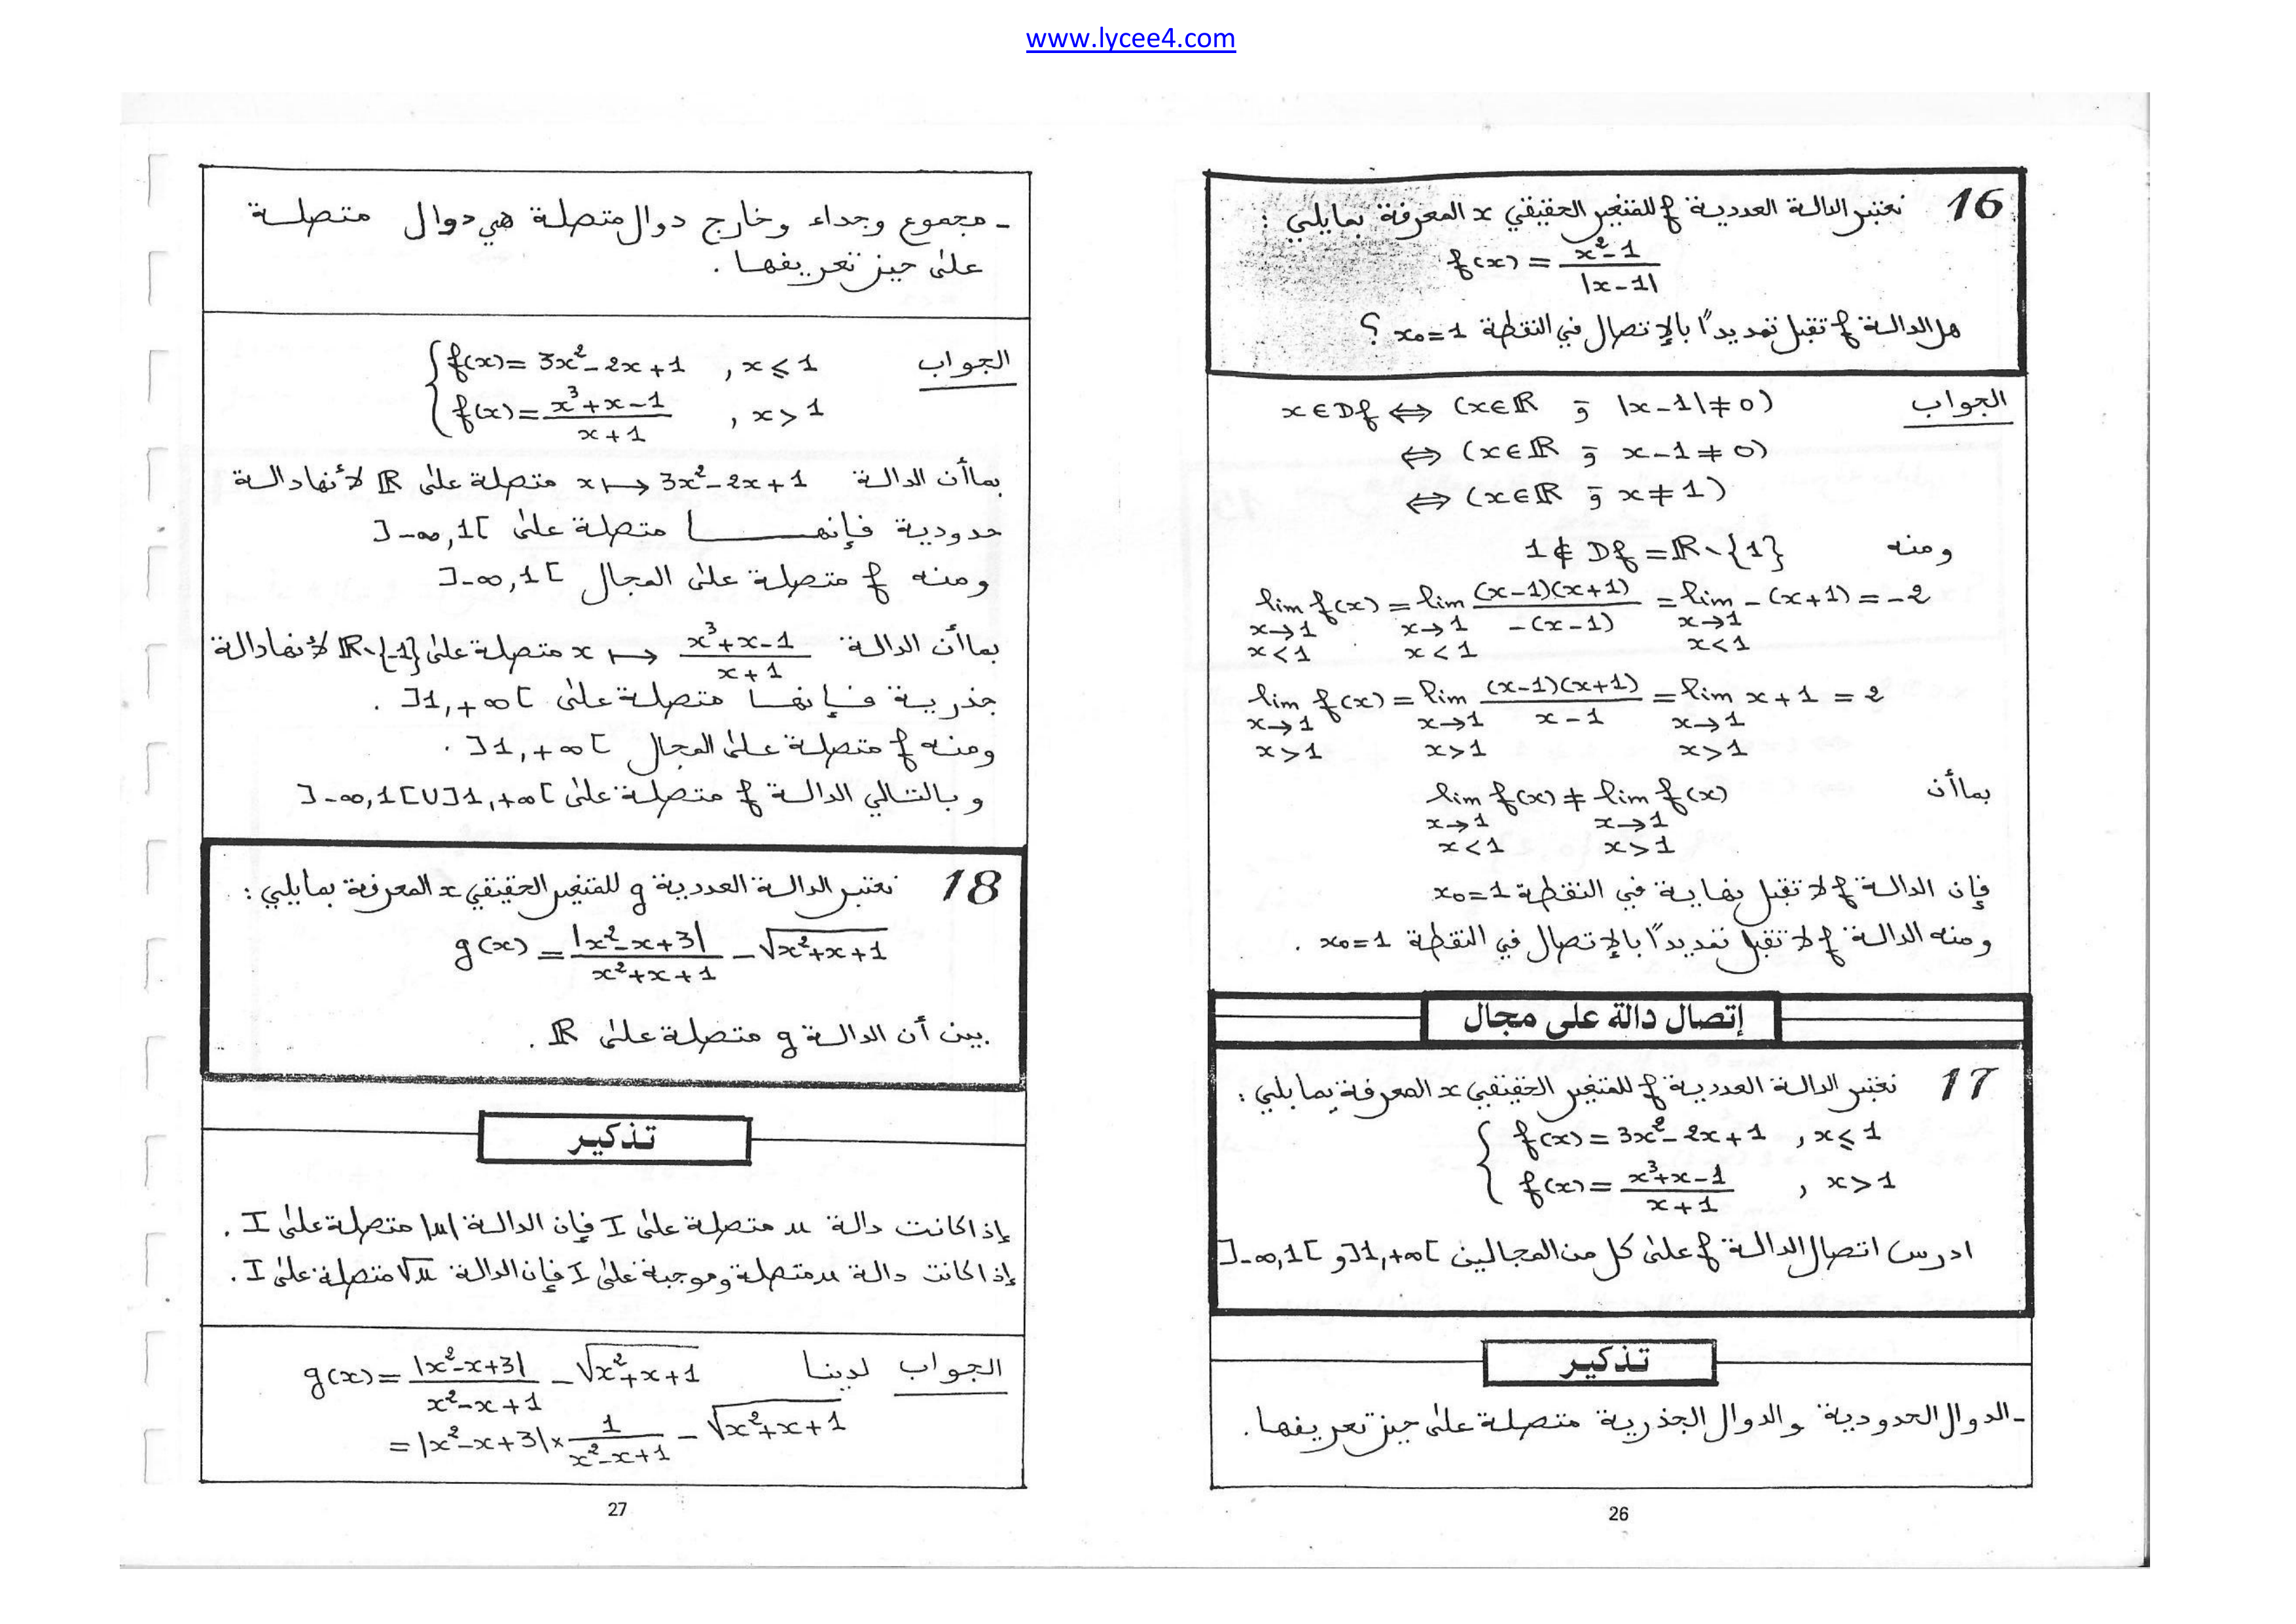 www.lycee4.com
16 نعتبر الدالة العددية f للمتغير الحقيقي x المعرفة بمايلي :
f(x) = \frac{x²-1}{|x-1|}
هل الدالة f تقبل تمديداً بالإتصال في النقطة x₀=1 ؟
الجواب x∈Df ⇔ (x∈ℝ و |x-1|≠0)
⇔ (x∈ℝ و x-1≠0)
⇔ (x∈ℝ و x≠1)
ومنه 1∉Df = ℝ∖{1}
\lim_{x→1, x<1} f(x) = \lim_{x→1, x<1} \frac{(x-1)(x+1)}{-(x-1)} = \lim_{x→1, x<1} -(x+1) = -2
\lim_{x→1, x>1} f(x) = \lim_{x→1, x>1} \frac{(x-1)(x+1)}{x-1} = \lim_{x→1, x>1} x+1 = 2
بماأن \lim_{x→1, x<1} f(x) ≠ \lim_{x→1, x>1} f(x)
فإن الدالة f لا تقبل نهاية في النقطة x₀=1
ومنه الدالة f لا تقبل تمديداً بالإتصال في النقطة x₀=1 .
إتصال دالة على مجال
17 نعتبر الدالة العددية f للمتغير الحقيقي x المعرفة بمايلي :
f(x) = 3x²-2x+1 , x⩽1
f(x) = \frac{x³+x-1}{x+1} , x>1
ادرس اتصال الدالة f على كل من المجالين ]1,+∞[ و ]-∞,1[
تذكير
- الدوال الحدودية والدوال الجذرية متصلة على حيز تعريفها .
26
- مجموع وجداء وخارج دوال متصلة هي دوال متصلة
على حيز تعريفها .
الجواب f(x) = 3x²-2x+1 , x⩽1
f(x) = \frac{x³+x-1}{x+1} , x>1
بماأن الدالة x ↦ 3x²-2x+1 متصلة على ℝ لأنها دالة
حدودية فإنها متصلة على ]-∞,1[
ومنه f متصلة على المجال ]-∞,1[
بماأن الدالة x ↦ \frac{x³+x-1}{x+1} متصلة على ℝ∖{-1} لأنها دالة
جذرية فإنها متصلة على ]1,+∞[ .
ومنه f متصلة على المجال ]1,+∞[ .
وبالتالي الدالة f متصلة على ]-∞,1[∪]1,+∞[
18 نعتبر الدالة العددية g للمتغير الحقيقي x المعرفة بمايلي :
g(x) = \frac{|x²-x+3|}{x²+x+1} - √(x²+x+1)
بين أن الدالة g متصلة على ℝ .
تذكير
إذا كانت دالة u متصلة على I فإن الدالة |u| متصلة على I .
إذا كانت دالة u متصلة وموجبة على I فإن الدالة √u متصلة على I .
الجواب لدينا g(x) = \frac{|x²-x+3|}{x²-x+1} - √(x²+x+1)
= |x²-x+3| × \frac{1}{x²-x+1} - √(x²+x+1)
27